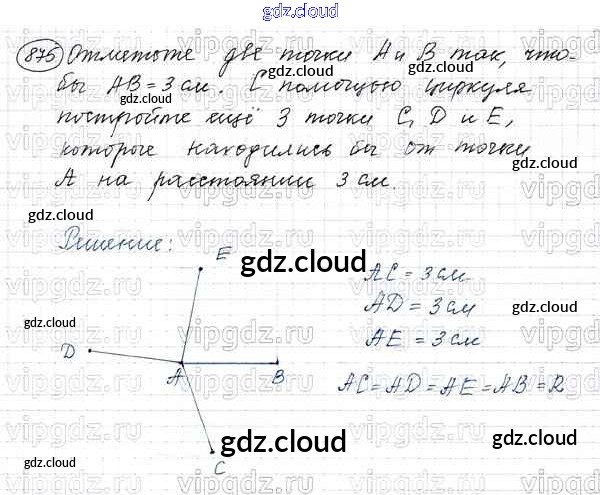 gdz.cloud
875 Отметьте две точки A и B так, что-
бы AB = 3 см. С помощью циркуля
gdz.cloud gdz.cloud
постройте ещё 3 точки C, D и E,
которые находились бы от точки
gdz.cloud
A на расстоянии 3 см.
gdz.cloud gdz.cloud
Решение:
E
gdz.cloud
AC = 3 см
AD = 3 см
gdz.cloud gdz.cloud
AE = 3 см
D
A B
AC = AD = AE = AB = R
gdz.cloud
gdz.cloud gdz.cloud
C
vipgdz.ru